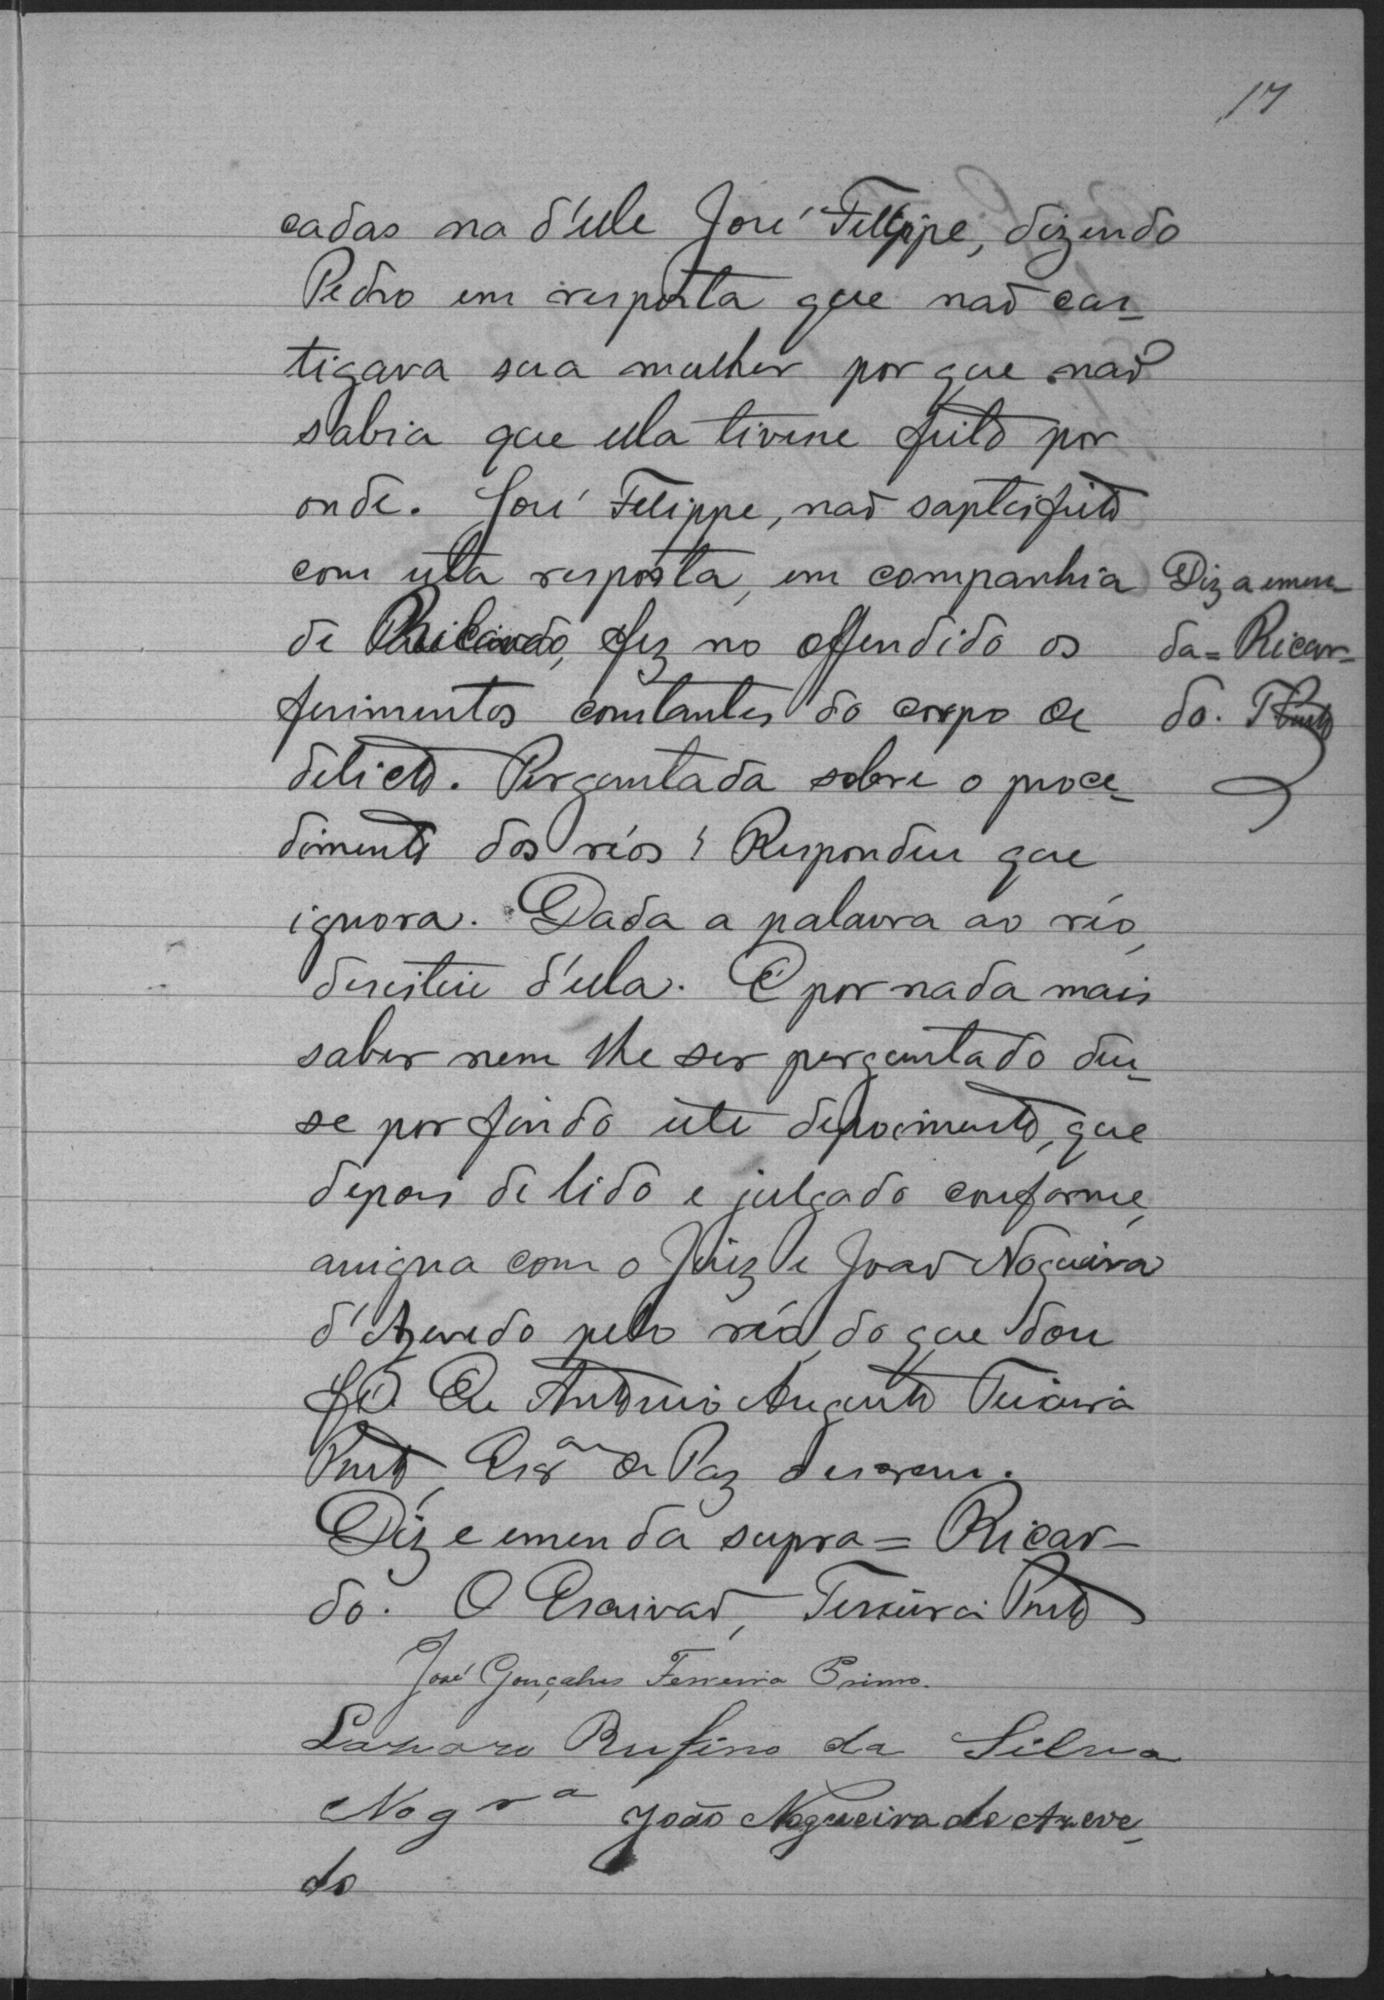 17
cadas na d'elle José Felippe, dizendo
Pedro em resposta que não cas-
tigava sua mulher por que não
sabia que ella tivesse feito por
onde. José Felippe, não saptisfeito
com esta resposta, em companhia
de Ricardo, fez no offendido os
ferimentos constantes do corpo de
delicto. Perguntada sobre o proce-
dimento dos réos? Respondeu que
ignora. Dada a palavra ao réo,
desistiu d'ella. E por nada mais
saber nem lhe ser perguntado deu-
se por findo este depoimento, que
depois de lido e julgado conforme,
assigna com o Juiz e João Nogueira
d'Azevedo pelo réo, do que dou
fé Eu Antonio Augusto Teixeira
Porto, Escrªm de Paz o escrevi.
Diz e emenda supra = Ricar-
do. O Escrivão, Teixeira Porto
José Gonçalves Ferreira Primo.
Lazaro Rufino da Silva
Nogrª João Nogueira de Azeve-
do
Diz a emen-
da = Ricar-
do. TPorto